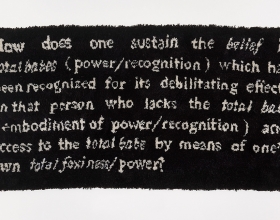 How does one sustain the belief i
total babes (power/recognition) which ha
been recognized for its debilitating effect
on that person who lacks the total bab
(embodiment of power/recognition) and
access to the total babe by means of one'
own total foxiness/power?